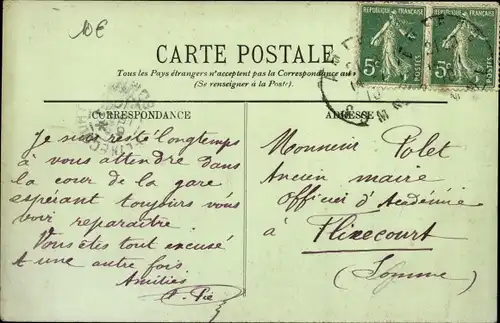 10€
RÉPUBLIQUE FRANÇAISE
5c
RÉPUBLIQUE FRANÇAISE
5c
CARTE POSTALE
Tous les Pays étrangers n'acceptent pas la Correspondance au
(Se renseigner à la Poste.)
CORRESPONDANCE
ADRESSE
Je suis resté longtemps
à vous attendre dans
la cour de la gare
espérant toujours vous
voir reparaitre.
Vous êtes tout excusé
A une autre fois
Amitiés
Monsieur Polet
Ancien maire
Officier d'Académie
à Flixecourt
(Somme)